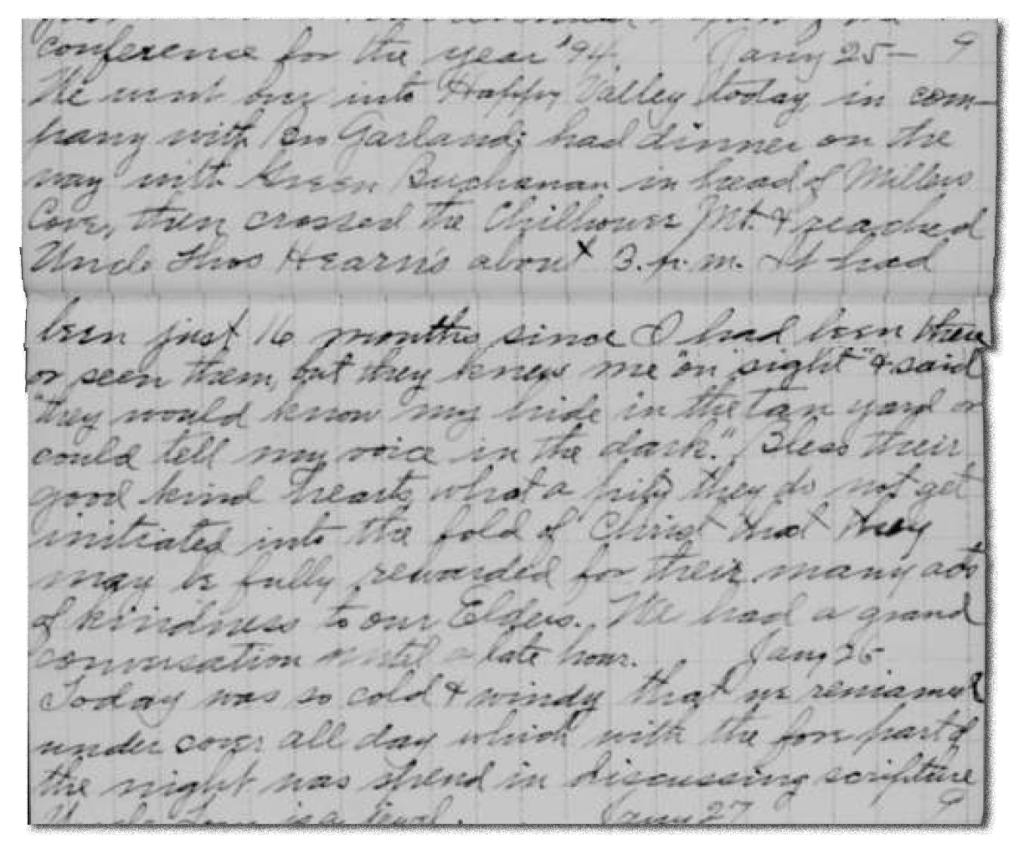 conference for the year '94. Jany 25- 9
We went over into Happy Valley today, in com-
pany with Garland; had dinner on the
way with Green Buchanan in head of Millers
Cove, then crossed the Chilhower Mt. & reached
Uncle Thos Hearn's about 3. p. m. It had
been just 16 months since I had been there
or seen them, but they knew me "on sight" & said
"they would know my hide in the tan yard or
could tell my voice in the dark." Bless their
good kind hearts, what a pity they do not get
initiated into the fold of Christ that they
may be fully rewarded for their many acts
of kindness to our Elders. We had a grand
conversation until a late hour. Jany 26
Today was so cold & windy that we remained
under cover all day which with the fore part of
the night was spend in discussing scripture
Jany 27 9